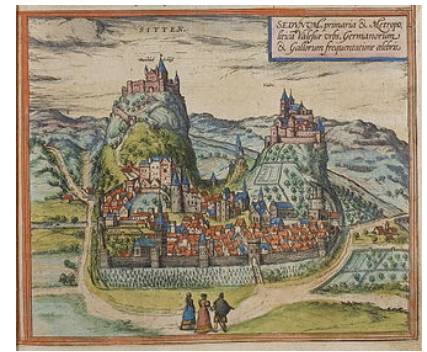 SITTEN.
SEDVNVM, primaria & Metropo,
litica Valesiæ vrbs, Germanorum,
& Gallorum frequentatione celebris.